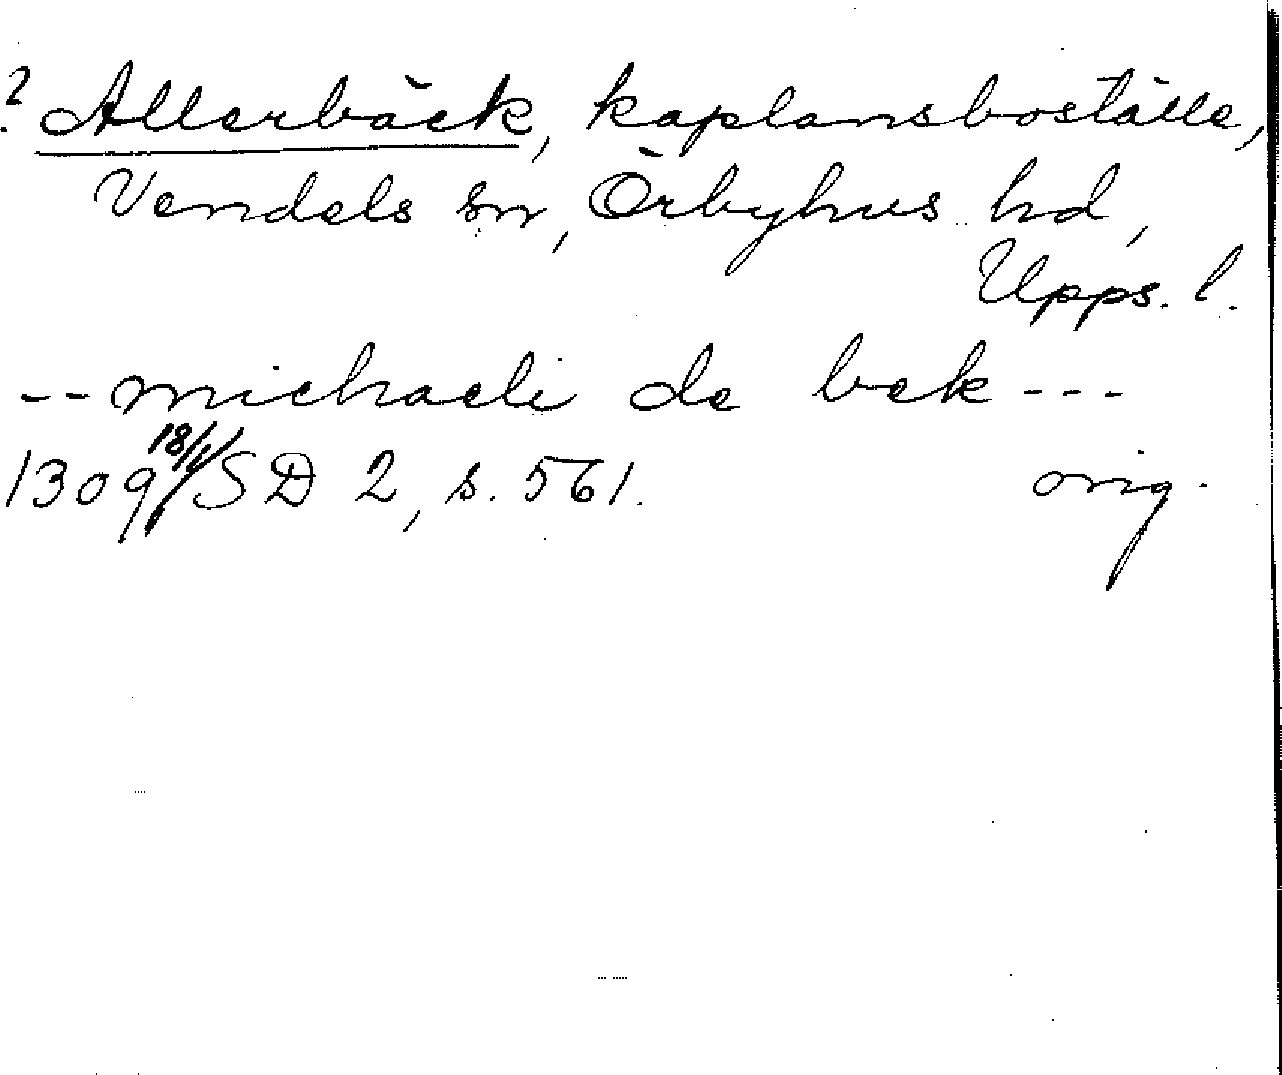 ? Allerbäck, kaplansboställe,
Vendels sn, Örbyhus hd,
Upps. l.
-- michaeli de bek ---
1309 18/1 SD 2, s. 561. orig.